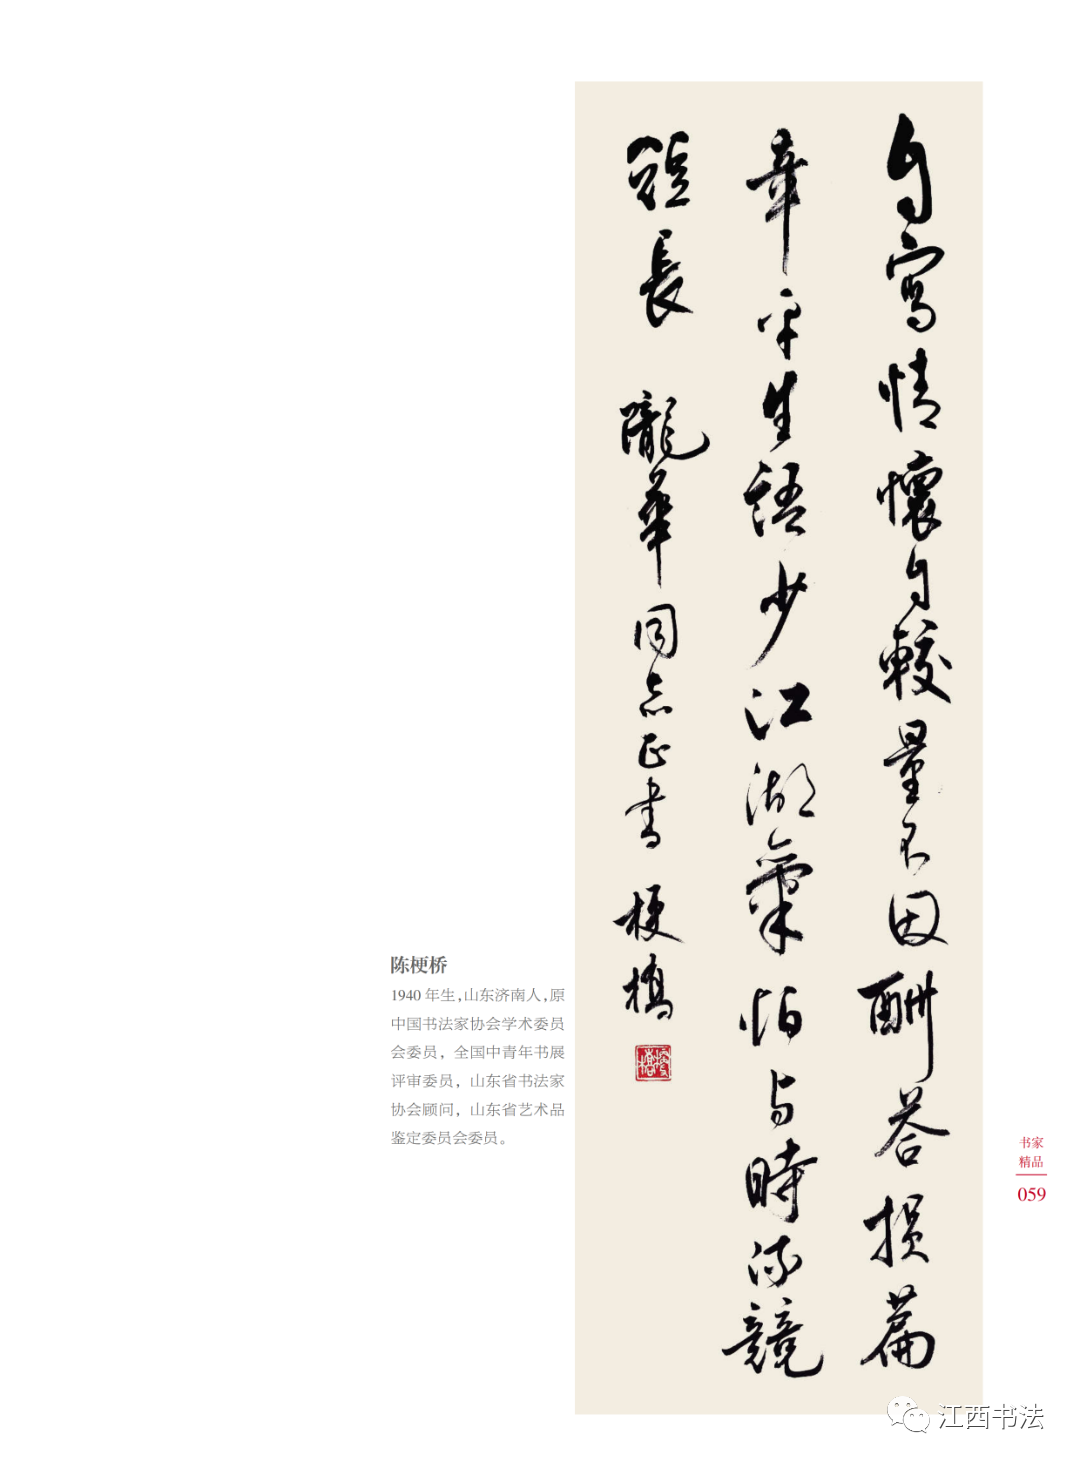 自寫情懷自較量不因酬答損篇
章平生語少江湖氣怕与時流競
短長 隴華同志正書 梗橋
陈梗桥
1940 年生，山东济南人，原
中国书法家协会学术委员
会委员，全国中青年书展
评审委员，山东省书法家
协会顾问，山东省艺术品
鉴定委员会委员。
书家
精品
059
江西书法